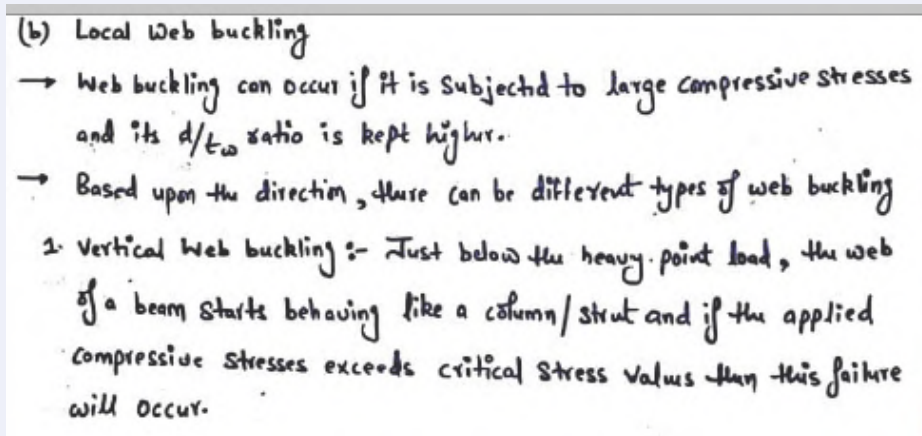 (b) Local Web buckling
→ Web buckling can occur if it is Subjectd to large compressive stresses
and its d/tw ratio is kept higher.
→ Based upon the direction, there can be different types of web buckling
1. Vertical Web buckling :- Just below the heavy point load, the web
of a beam starts behaving like a column/strut and if the applied
compressive stresses exceeds critical stress values then this failure
will occur.